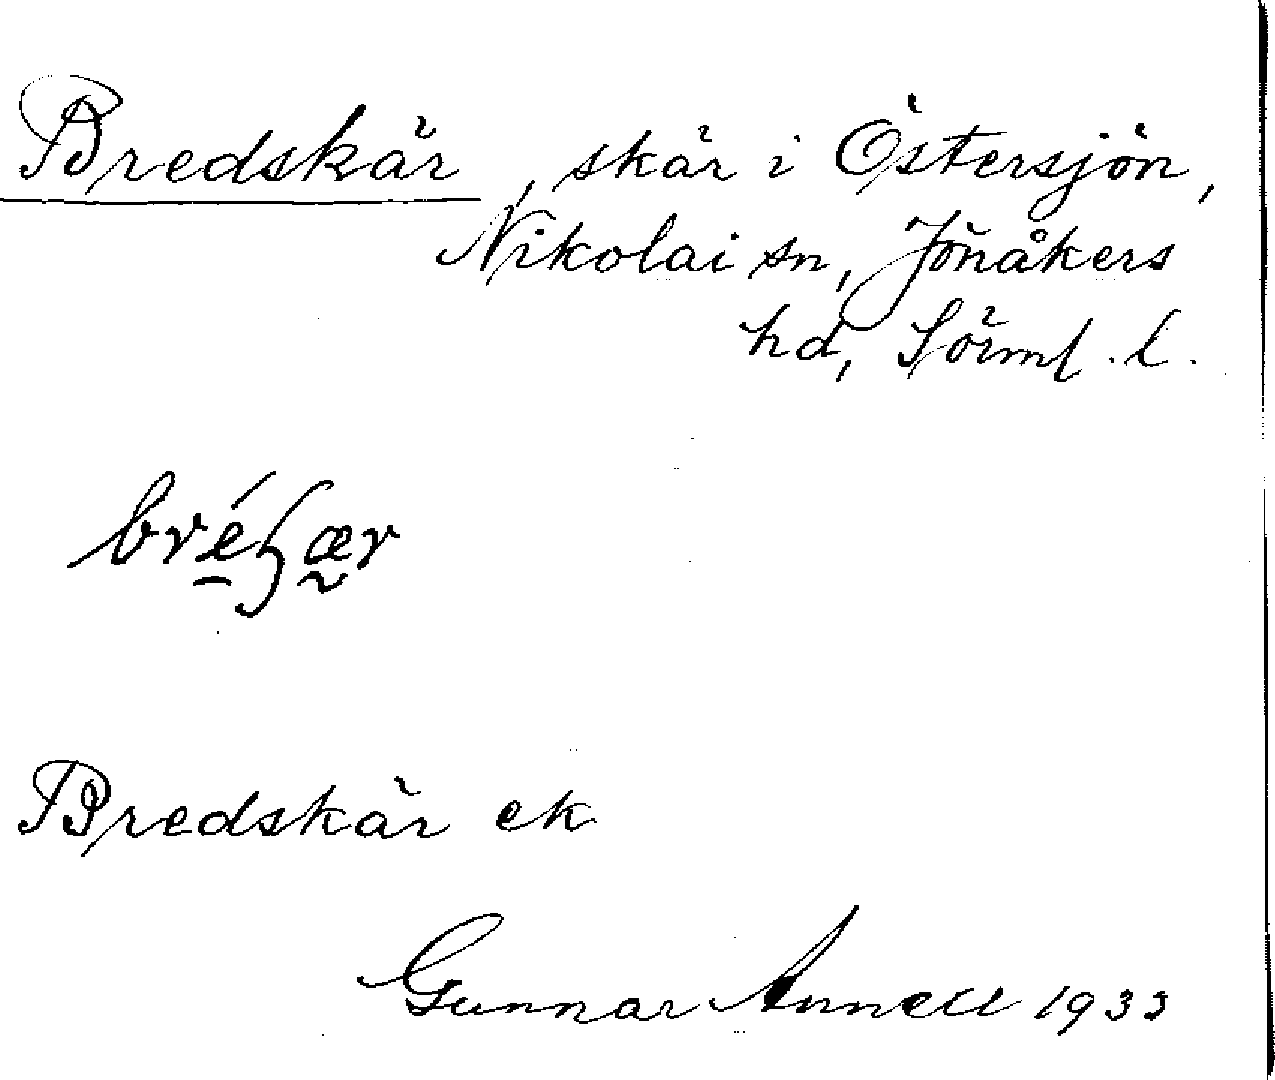 Bredskär, skär i Östersjön,
Nikolai sn, Jönåkers
hd, Sörml. l.
Bredskär ek
Gunnar Annell 1933